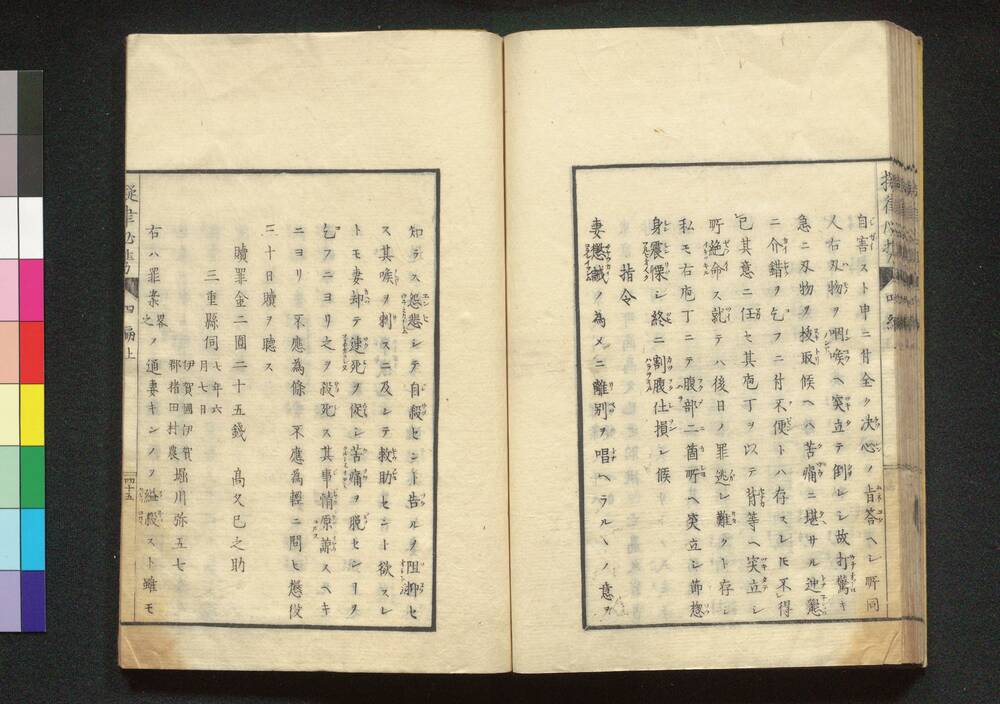 自害スト申ニ付全ク決心ノ旨答ヘシ所同
人右刃物ヲ咽喉ヘ突立テ倒レシ故打驚キ
急ニ刃物ヲ抜取候ヘハ苦痛ニ堪サル迚懇
ニ介錯ヲ乞フニ付不便トハ存スレ𪜈不得
已其意ニ任セ其庖丁ヲ以テ背等ヘ突立シ
所絶命ス就テハ後日ノ罪逃レ難クト存シ
私モ右庖丁ニテ腹部二箇所ヘ突立シ節惣
身震慄シ終ニ割腹仕損シ候
指令
妻懲誡ノ為メニ離別ヲ唱ヘラルヽノ意ヲ
知ラス怨悲シテ自殺セント告ルヲ阻抑セ
ス其喉ヲ刺スニ及シテ救助セント欲スレ
トモ妻却テ速死ヲ促シ苦痛ヲ脱センリヲ
乞フニヨリ之ヲ殺死ス其事情原諒スヘキ
ニヨリ不應為條不應為輕ニ問ヒ懲役
三十日贖ヲ聴ス
贖罪金二圓二十五錢 髙久巳之助
三重縣伺 七年六月七日
伊賀國伊賀郡指田村農 堀川弥五七
右ハ罪案畧之ノ通妻キンノヲ殺スト雖モ
四編上
四十五